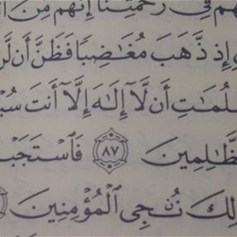 هم في رحمتنا إنهم من
إِذ ذَّهَبَ مُغَٰضِبًا فَظَنَّ أَن
لُمَٰتِ أَن لَّآ إِلَٰهَ إِلَّآ أَنتَ سُبْ
ظَّٰلِمِينَ ٨٧ فَٱسْتَجَبْ
لِكَ نُـۨجِى ٱلْمُؤْمِنِينَ